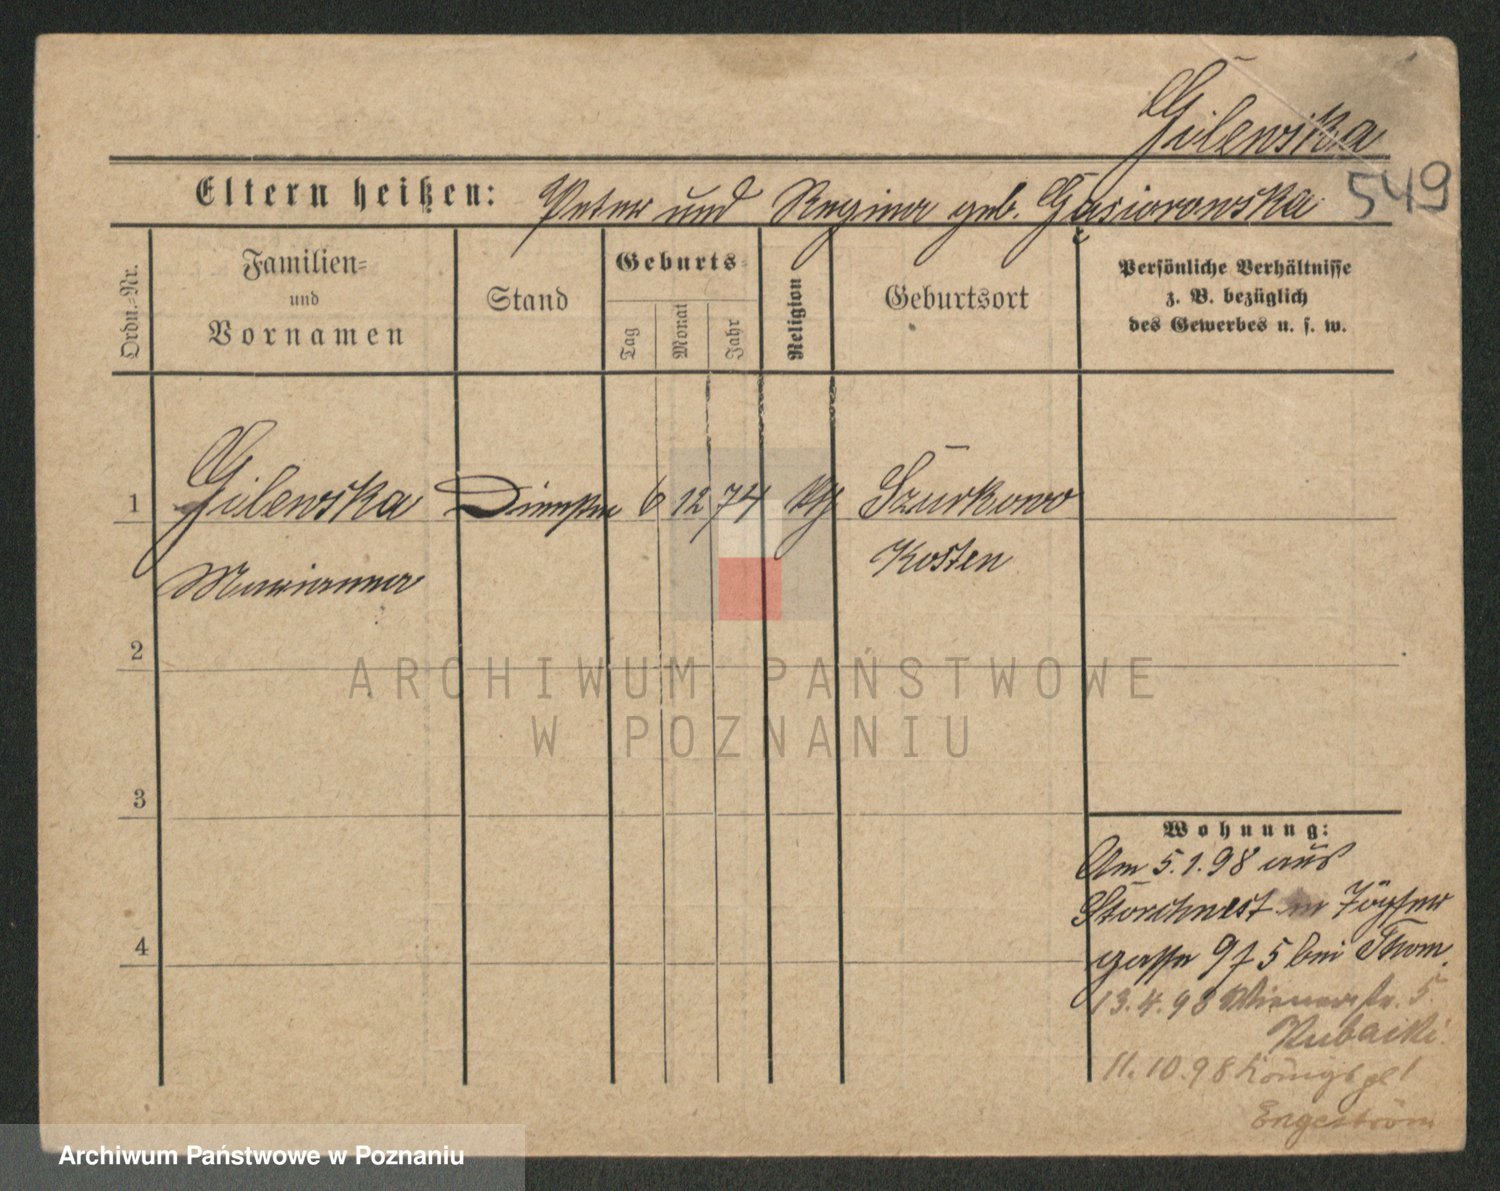 Gilewska
549
Eltern heißen: Peter und Regina geb. Gąsiorowska
Ordn.-Nr.
Familien-
und
Vornamen
Stand
Geburts-
Tag
Monat
Jahr
Religion
Geburtsort
Persönliche Verhältnisse
z. B. bezüglich
des Gewerbes u. s. w.
1 Gilewska 6 12 74 kth Szurkowo
Marianna Kosten
2
3
4
Wohnung:
Am 5.1.98 aus
Storchnest in Töpfer
gasse 9 bei Thom.
13.4.98 Wienerstr. 5.
Kubacki.
11.10.98 Königspl 1
Engeström
ARCHIWUM PAŃSTWOWE
W POZNANIU
Archiwum Państwowe w Poznaniu